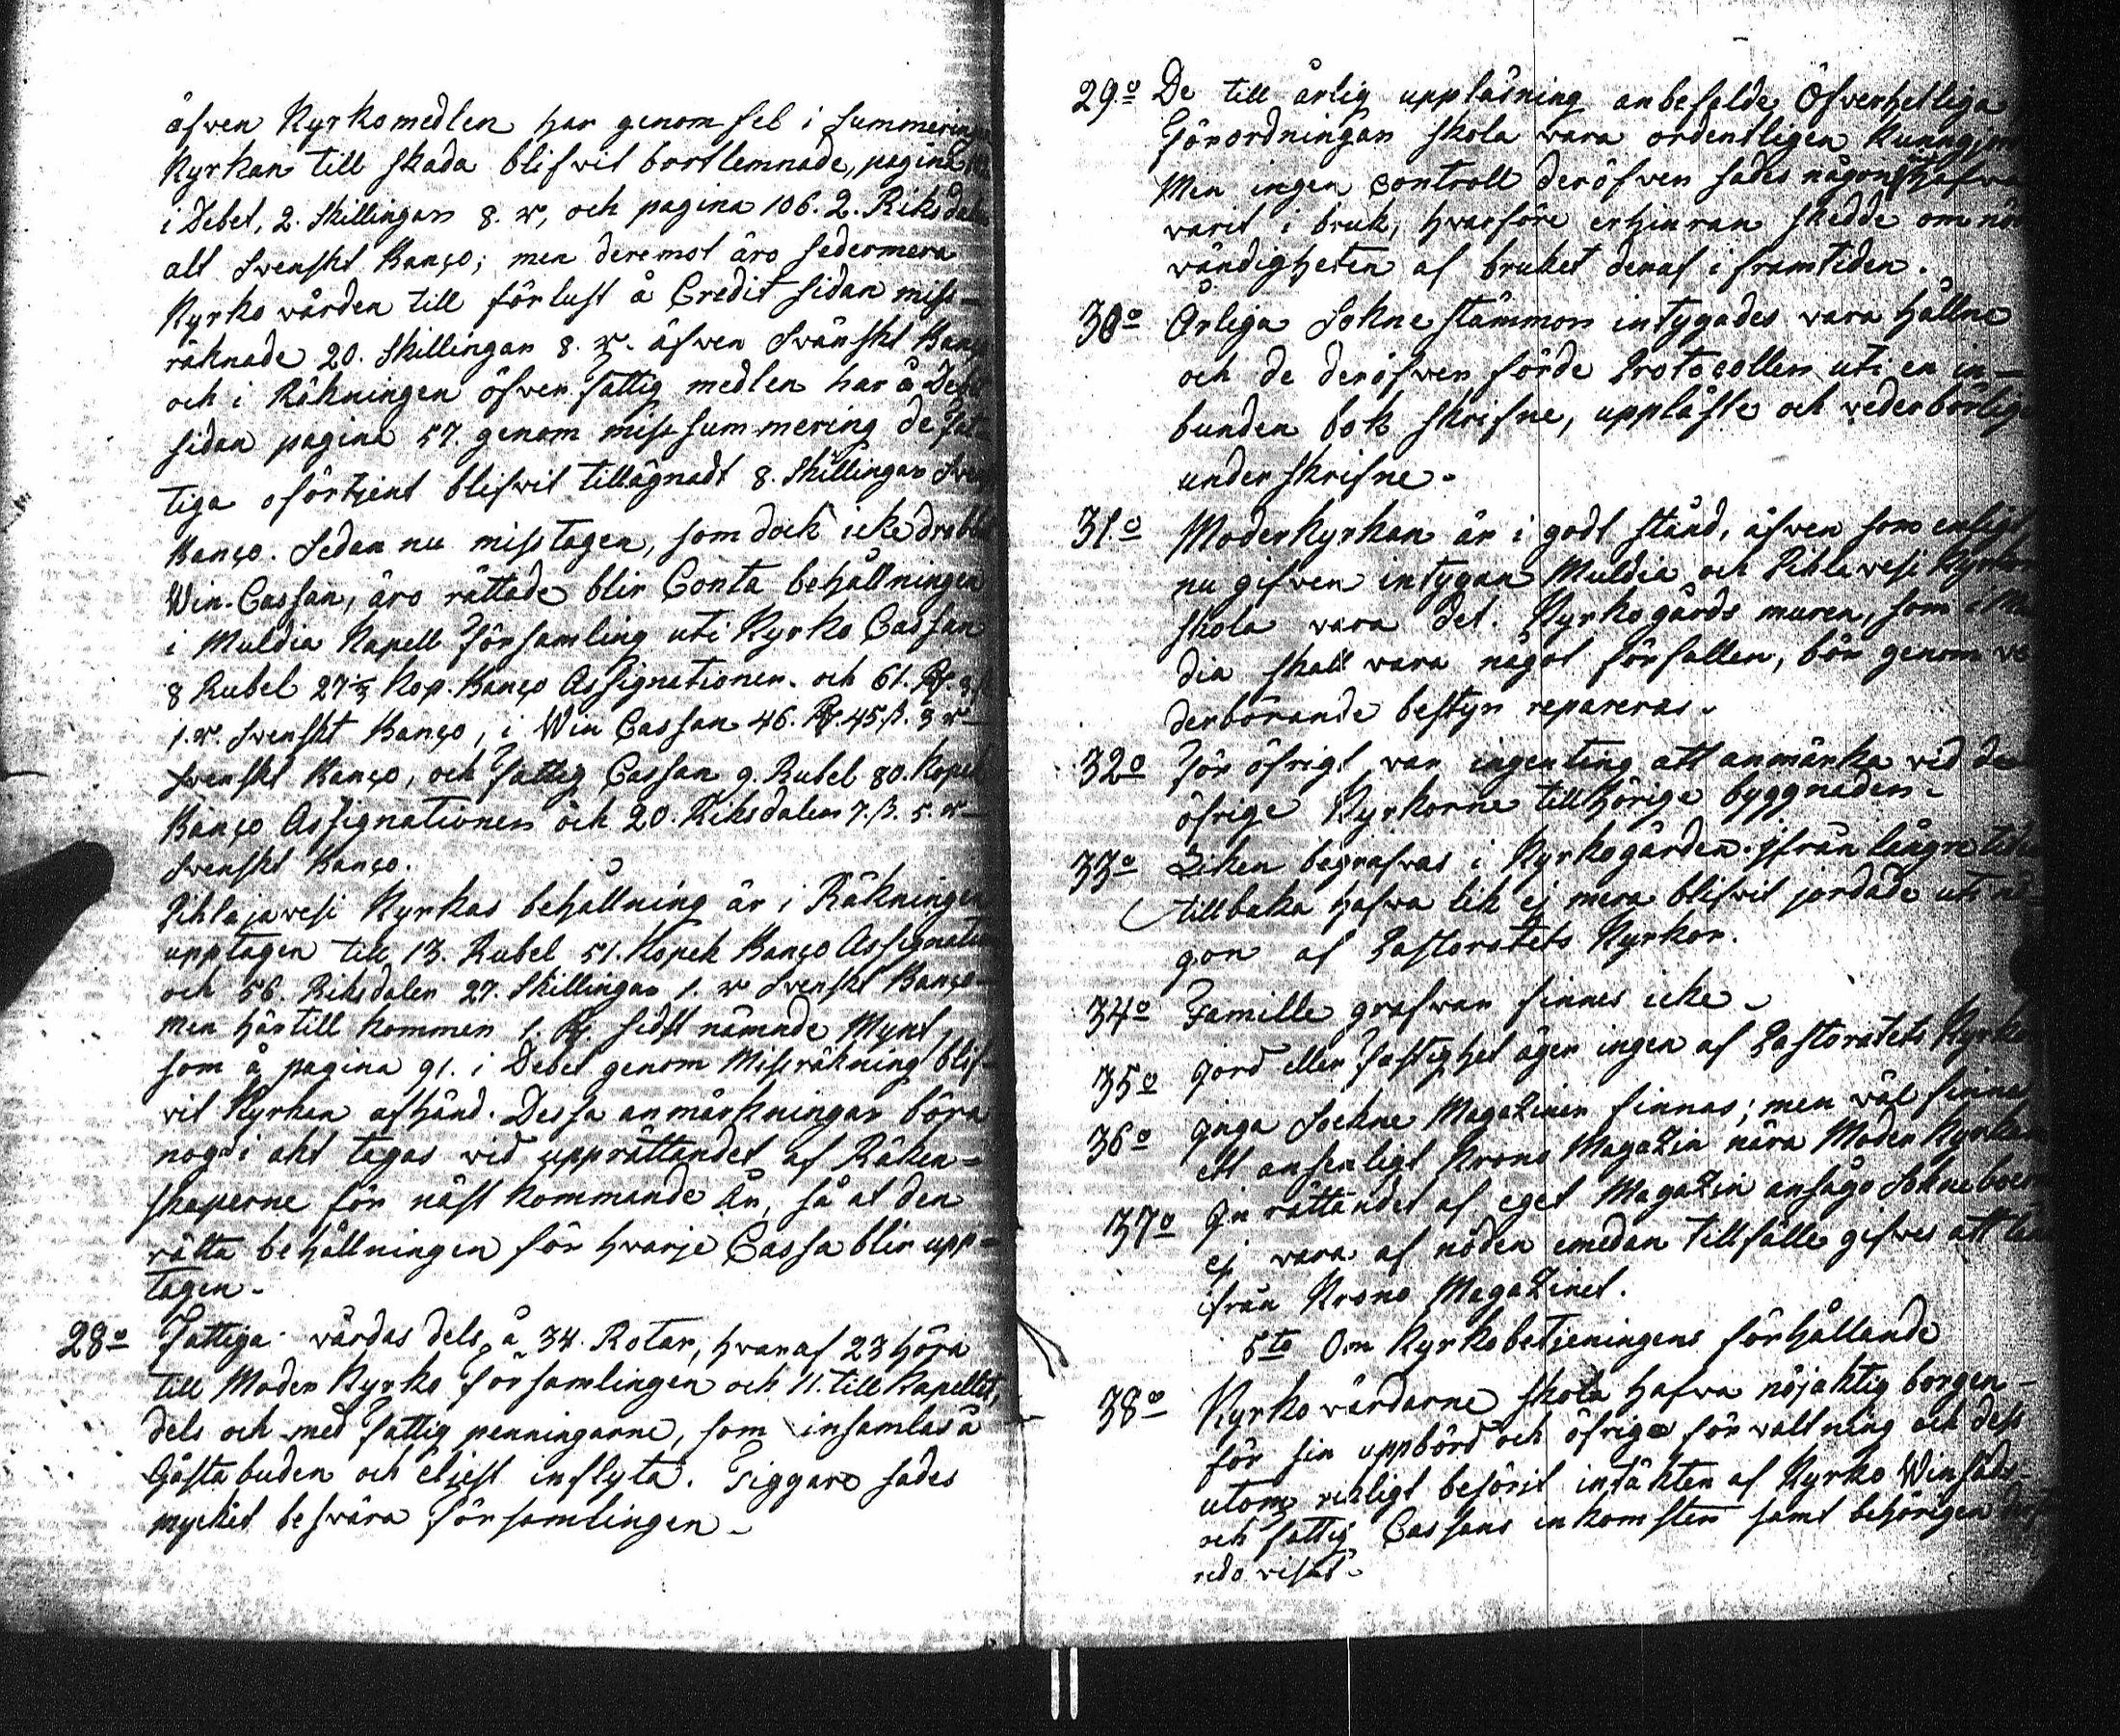 äfven Kyrkomedlen har genom fel i summeringen
Kyrkan till skada blifvit bortlemnade, pagina
i Debet, 2. Skillingar 8. r, och pagina 106. 2. Riksdaler
alt Svenskt Banço; men deremot äro sedermera
Kyrko vården till förlust å Credit sidan miss-
räknade 20. Skillingar 8. r. äfven Svänskt Banço
och i Räkningen öfver fattig medlen har å Debet
sidan pagina 57. genom miss summering de Fat-
tiga oförtjent blifvit tillägnadt 8. Skillingar Svenskt
Banço. Sedan nu misstagen, som dock icke drabba
Win-Cassan, äro rättade blir Conta behållningen
i Muldia Kapell Församling uti Kyrko Cassan
8 Rubel 27 Kop. Banço Assignationer. och 61. Rf.
1. r. Svenskt Banço, i Win Cassan 46. Rf. 45. ß. 3 r-
Svenskt Banço, och Fattig Cassan 9. Rubel 80. Kopek
Banço Assignationer och 20. Riksdaler 7. ß. 5. r-
Svenskt Banço.
Pihlajavesi Kyrkas behållning är i Räkningen
upptagen till 13. Rubel 51. Kopek Banço Assignation
och 56. Riksdaler 27. Skillingar 1. r Svenskt Banço-
Men härtill kommer 1. Rf. sidst nämnde Mynt,
som å pagina 91. i Debet genom Missräkning blif-
vit Kyrkan afhänd. Dessa anmärkningar böra
noga i akt tagas vid upprättandet af Räken-
skaperne för näst kommande År, så at den
rätta behållningen för hvarje Cassa blir upp-
tagen.
28o Fattiga vårdas dels å 34. Rotar, hvaraf 23 höra
till Moder Kyrko församlingen och 11. till Kapellet,
dels och med fattig penningarne, som insamlas å
Gästabuden och eljest inflyta. Tiggare sades
mycket besvära församlingen.
29o De till årlig uppläsning anbefalde Öfverhetliga
Förordningar skola vara ordentligen kungjorde
Men ingen Controll deröfver sades någonsin hafva
varit i bruk, hvarföre erhinran skedde om nöd-
vändigheten af bruket deraf i framtiden.
30o Årliga Sokne stämmor intygades vara hållne
och de deröfver förde Protocoller uti en in-
bunden bok skrifne, uppläste och vederbörligen
underskrifne.
31o Moderkyrkan är i godt stånd, äfven som enligt
nu gifven intygan Muldia och Pihlavesi Kyrkor
skola vara det. Kyrkogårds muren, som i Mul-
dia skall vara något förfallen, bör genom ve-
derbörande bestyr repareras.
32o För öfrigt var ingenting att anmärka vid de
öfrige Kyrkorne tillhörige byggnader.
33o Liken begrafvas i Kyrkogården. ifrån längre tider
tillbaka hafva lik ej mera blifvit jordade uti nå-
gon af Pastoratets Kyrkor.
34o Famille grafvar finnes icke.
35o Jord eller fastighet äger ingen af Pastoratets Kyrkor
36o Inga Sockne Magaziner finnas; men väl finnes
ett ansenligt Krono Magazin nära Moder Kyrkan
37o In rättandet af eget Magazin ansågo Sokneboerne
ej vara af nöden emedan tillfälle gifves att låna
ifrån Krono Magazinet.
5to Om Kyrkobetjeningens förhållande
38o Kyrko värdarne skola hafva nöjaktig borgen-
för sin uppbörd och öfrige förvaltning och dess
utom riktigt befört intäkten af Kyrko Winsäds-
och fattig Cassans inkomster samt behörigen der
redo visat.